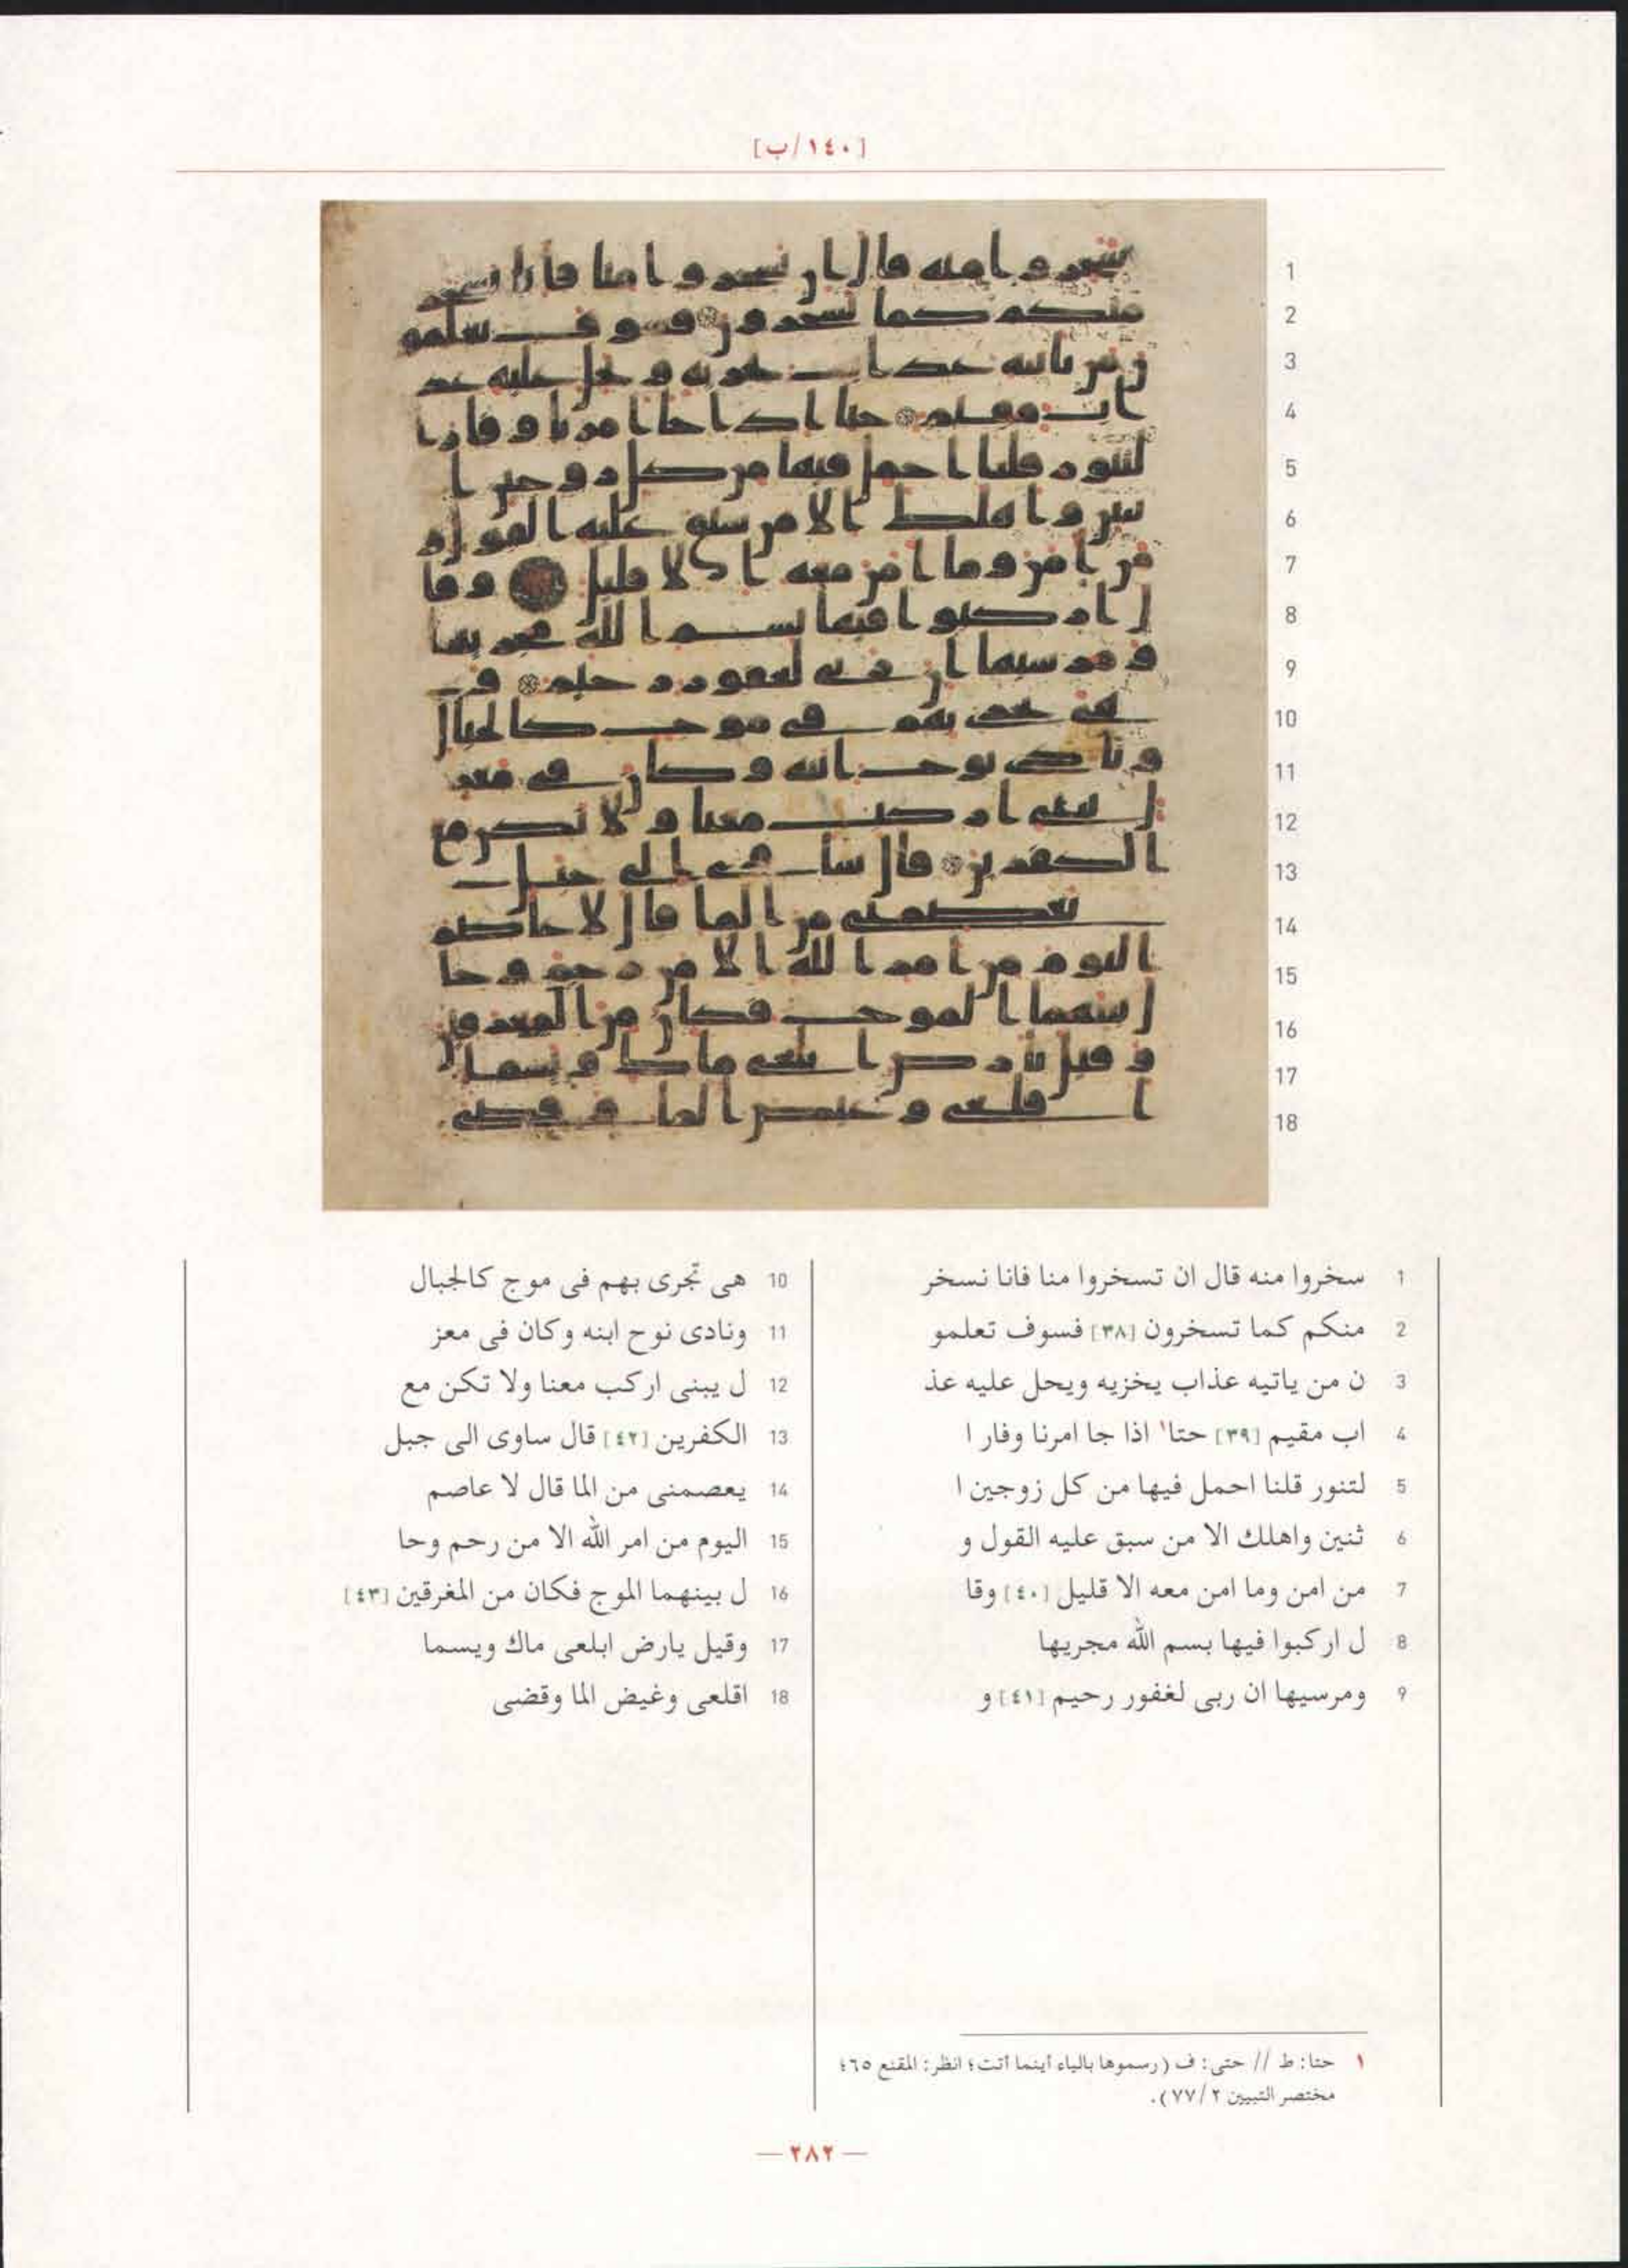 [١٤٠/ب]
1
2
3
4
5
6
7
8
9
10
11
12
13
14
15
16
17
18
1 سخروا منه قال ان تسخروا منا فانا نسخر
2 منكم كما تسخرون [٣٨] فسوف تعلمو
3 ن من ياتيه عذاب يخزيه ويحل عليه عذ
4 اب مقيم [٣٩] حتا١ اذا جا امرنا وفار ا
5 لتنور قلنا احمل فيها من كل زوجين ا
6 ثنين واهلك الا من سبق عليه القول و
7 من امن وما امن معه الا قليل [٤٠] وقا
8 ل اركبوا فيها بسم الله مجريها
9 ومرسيها ان ربى لغفور رحيم [٤١] و
10 هى تجرى بهم فى موج كالجبال
11 ونادى نوح ابنه وكان فى معز
12 ل يبنى اركب معنا ولا تكن مع
13 الكفرين [٤٢] قال ساوى الى جبل
14 يعصمنى من الما قال لا عاصم
15 اليوم من امر الله الا من رحم وحا
16 ل بينهما الموج فكان من المغرقين [٤٣]
17 وقيل يارض ابلعى ماك ويسما
18 اقلعى وغيض الما وقضى
١ حتا: ط // حتى: ف (رسموها بالياء أينما أتت؛ انظر: المقنع ٦٥؛
مختصر التبيين ٢/ ٧٧).
— ٢٨٢ —